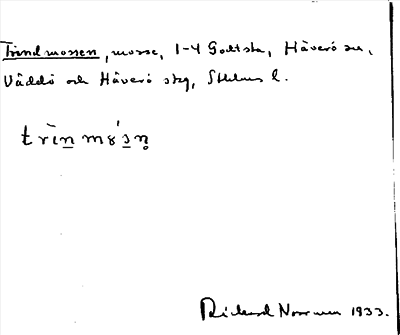 Trindmossen, mosse, 1-4 Godtsta, Häverö sn,
Väddö och Häverö skg, Sthlms l.
trìn mɤ́sn̥
Rickard Norrman 1933.